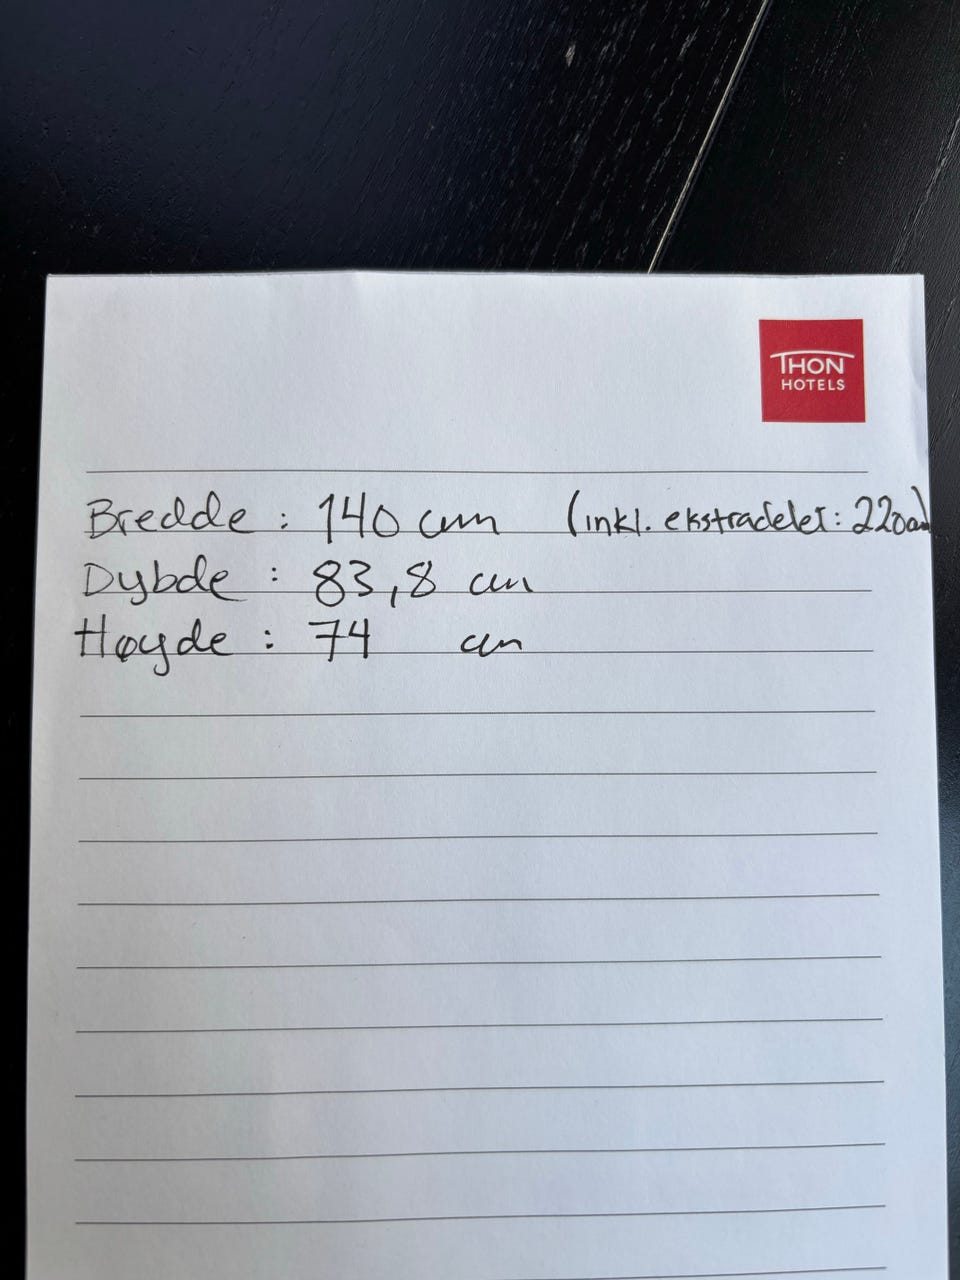 THON
HOTELS
Bredde : 140 cm (inkl. ekstradeler: 220cm)
Dybde : 83,8 cm
Høyde : 74 cm